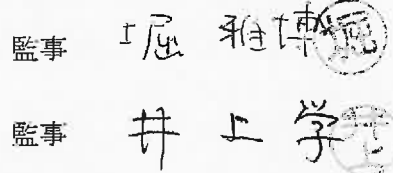 監事 堀 雅博 堀
監事 井上 学 井上